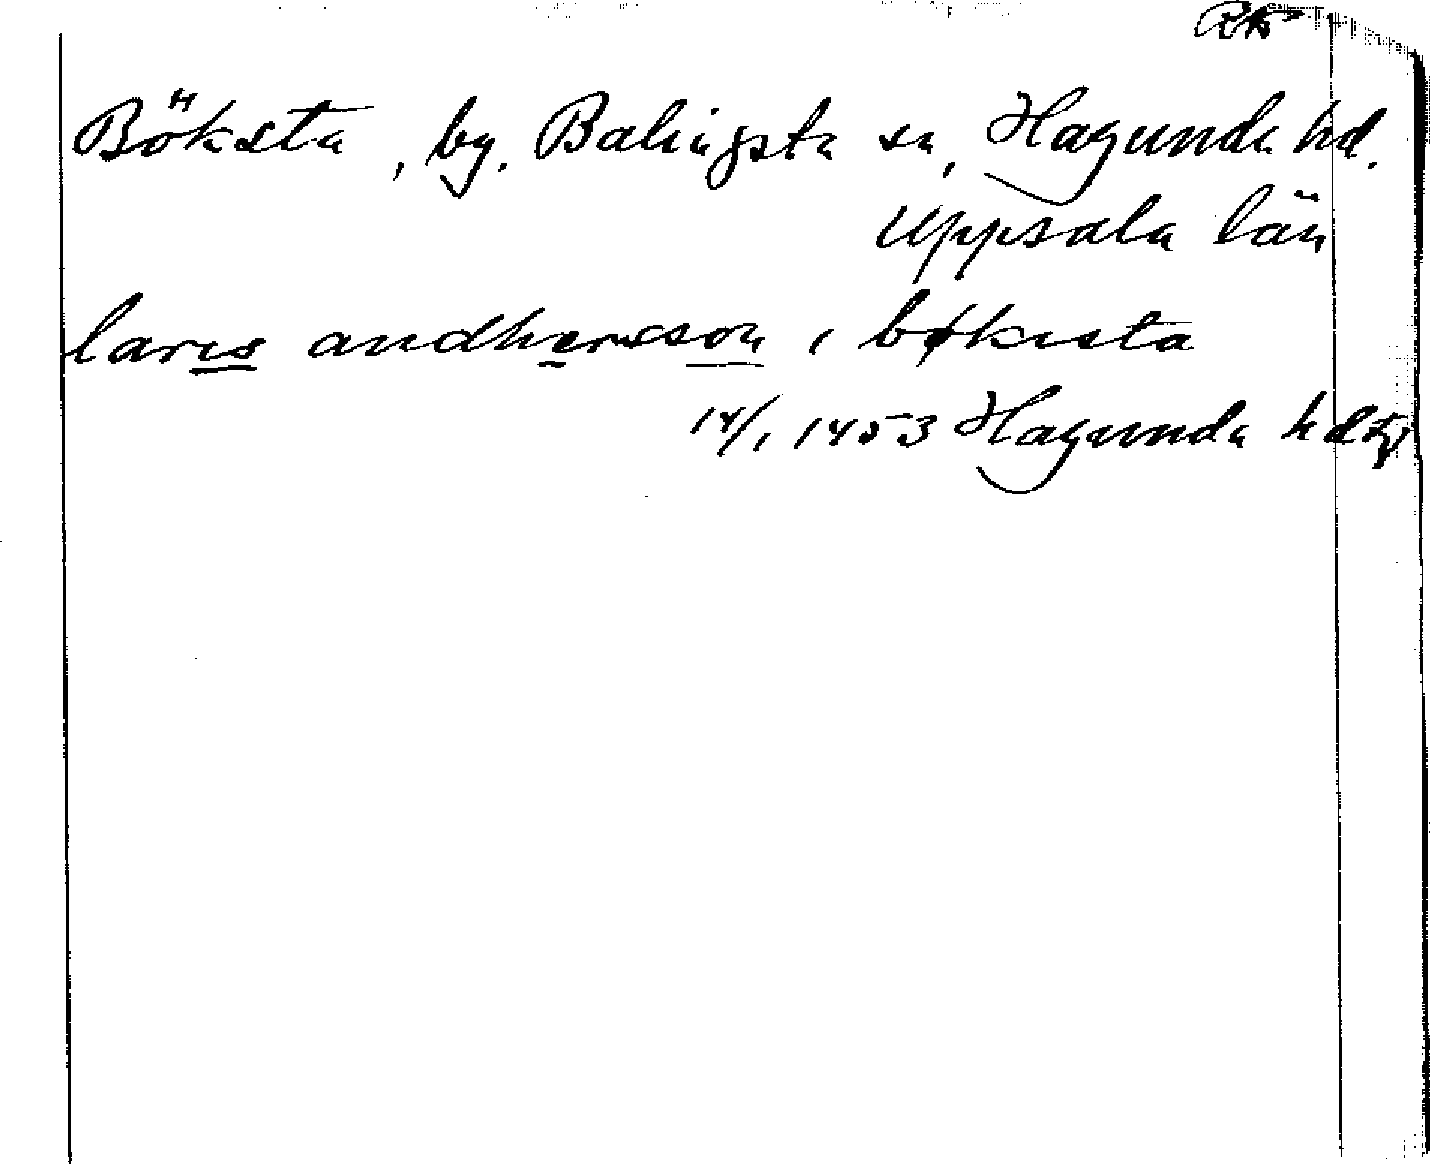 Böksta, by. Balingsta sn, Hagunda hd.
Uppsala län
laris andhersson i bøkista
14/1 1453 Hagunda hdtg